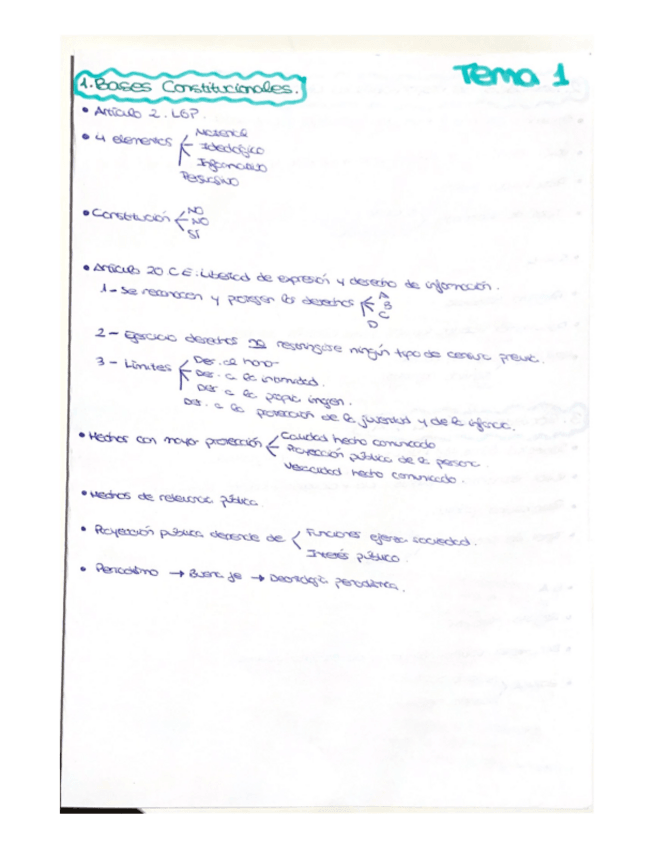 Tema 1
1. Bases Constitucionales.
• Artículo 2. LGP.
• 4 elementos
Material
Ideológico
Informativo
Persuasivo
• Constitución
NO
NO
SÍ
• Artículo 20 C.E: Libertad de expresión y derecho de información.
1- Se reconocen y protegen los derechos
A
B
C
D
2- Ejercicio derechos no restringirse ningún tipo de censura previa.
3- Límites
Der. al honor
Der. a la intimidad.
Der. a la propia imagen.
Der. a la protección de la juventud y de la infancia.
• Hechos con mayor protección
Cualidad hecho comunicado
Proyección pública de la persona.
Veracidad hecho comunicado.
• Hechos de relevancia pública
• Proyección pública depende de
Funciones ejerza sociedad.
Interés público.
• Periodismo → Buena fe → Deontología periodística.